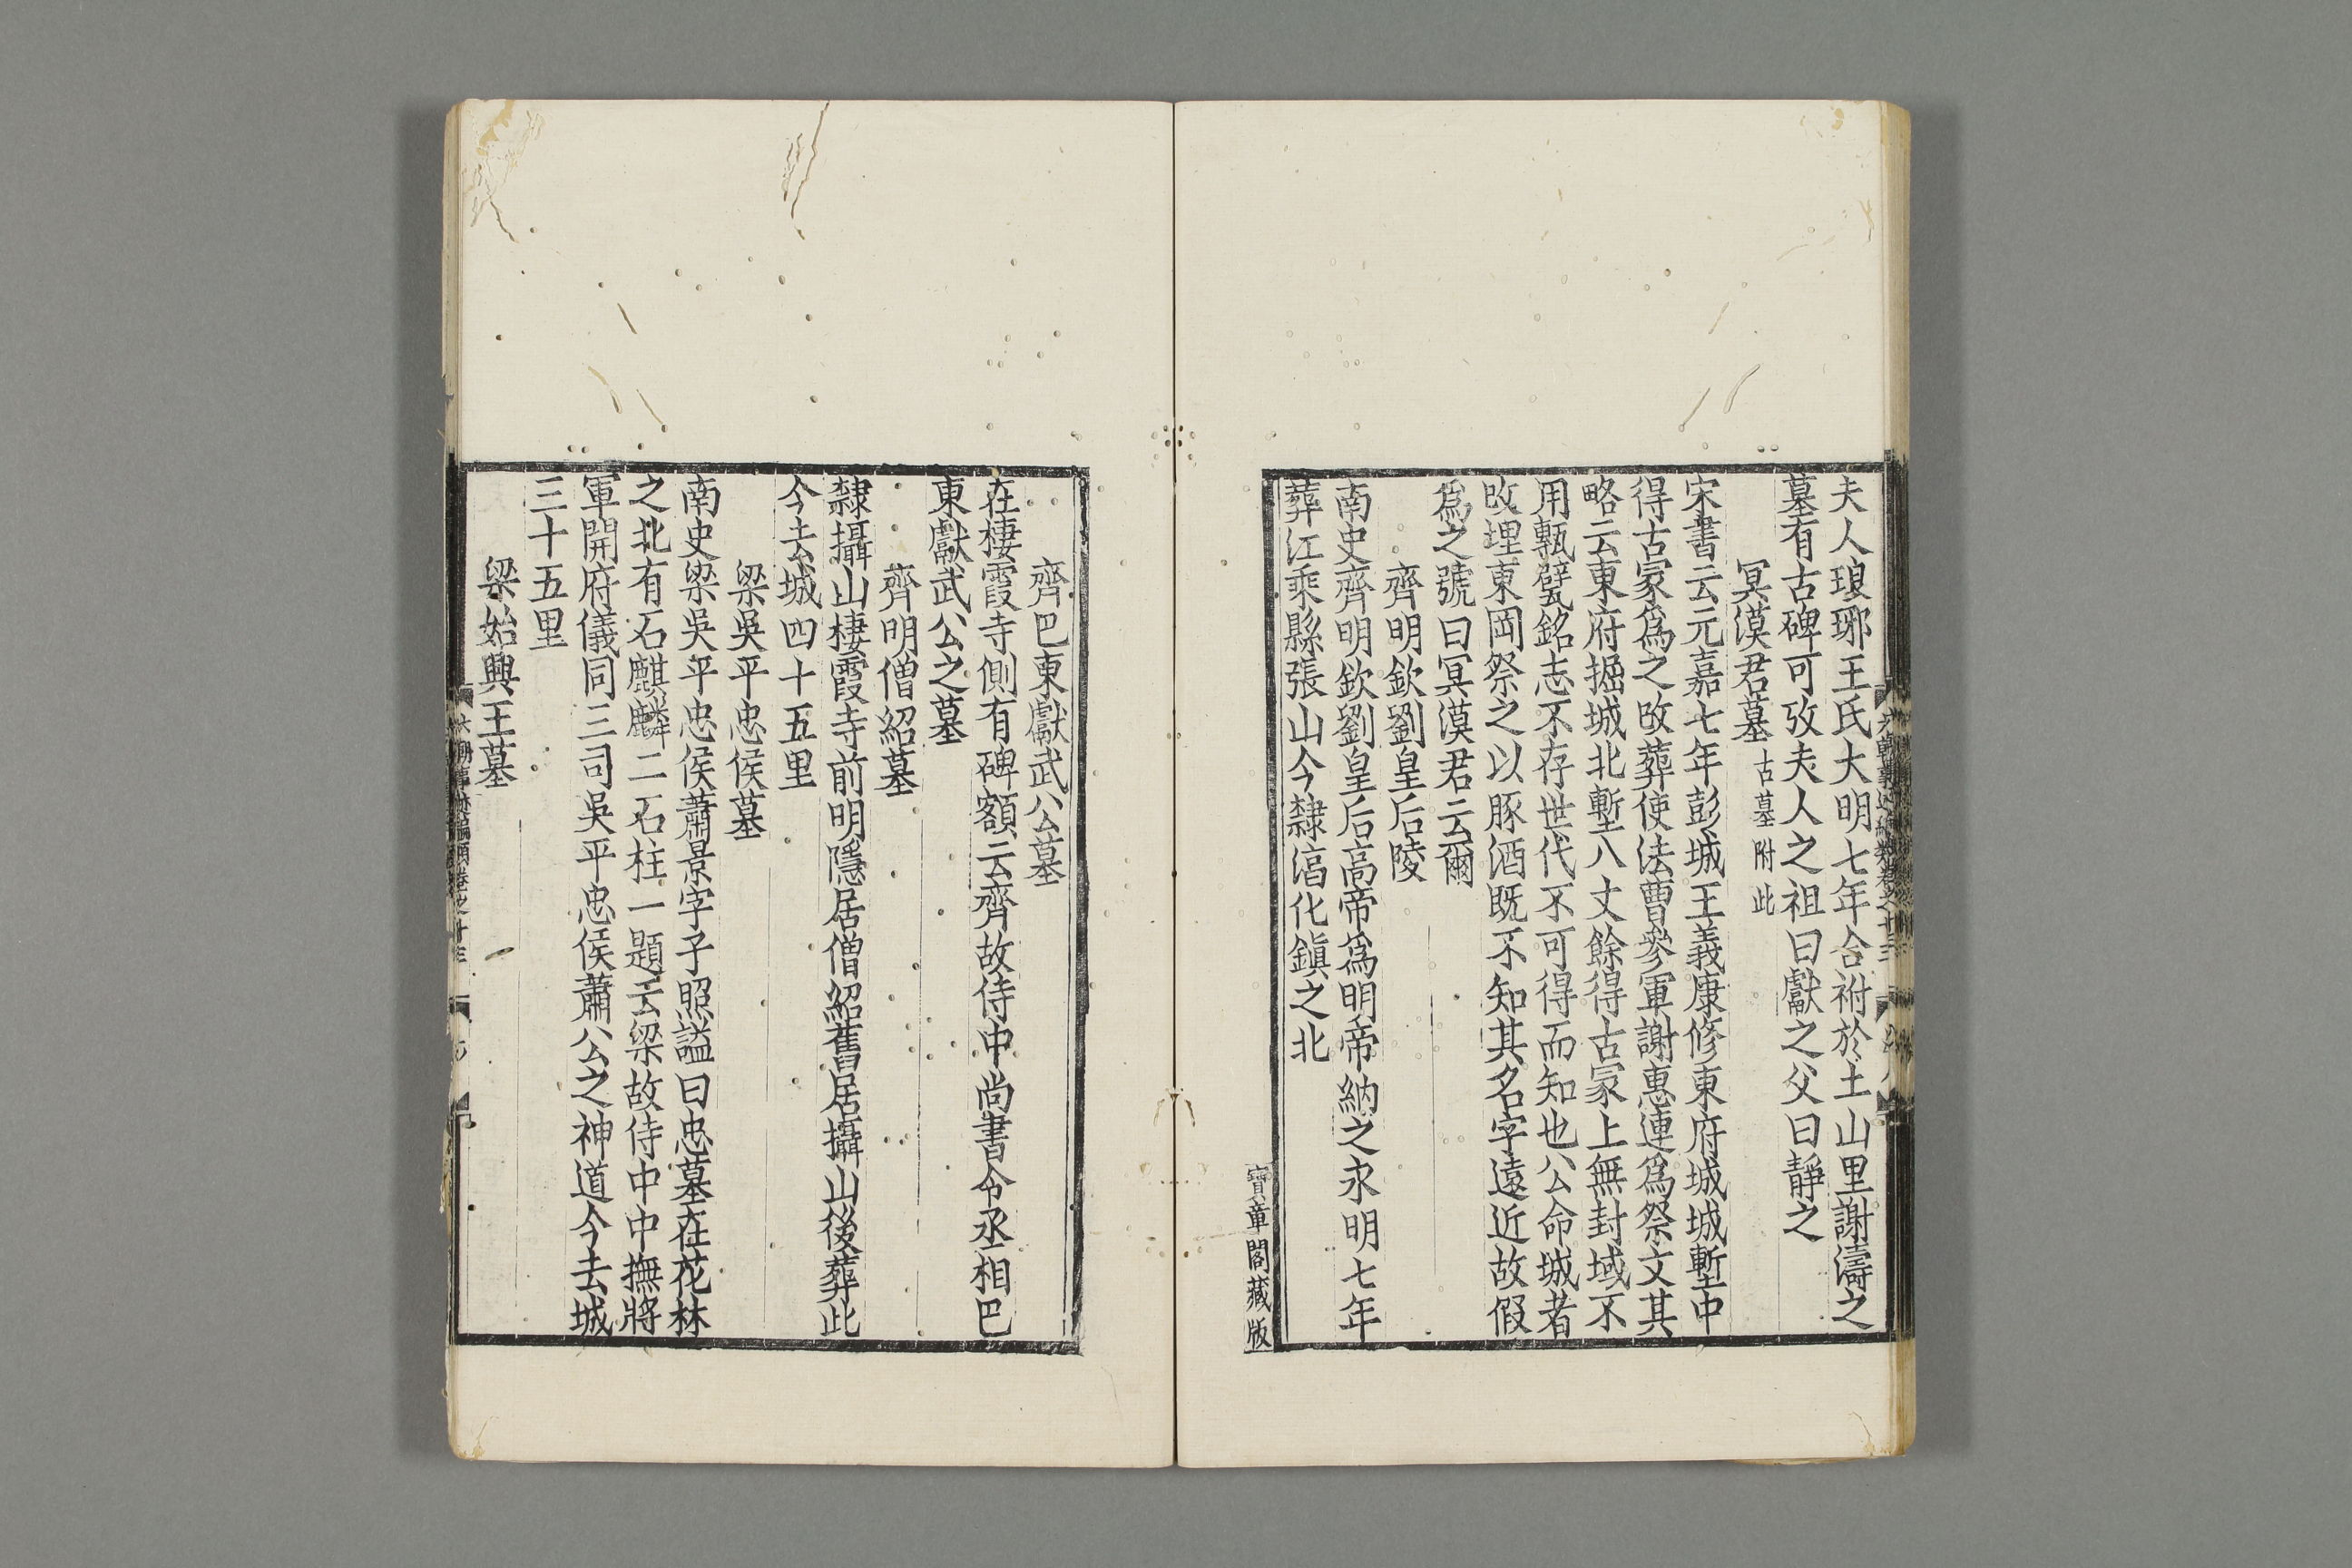 夫人琅琊王氏大明七年合祔於土山里謝濤之
墓有古碑可攷夫人之祖曰獻之父曰靜之
冥漠君墓古墓附此
宋書云元嘉七年彭城王義康修東府城城塹中
得古冢爲之改葬使法曹參軍謝惠連爲祭文其
略云東府掘城北塹八丈餘得古冢上無封域不
用甎甓銘志不存世代不可得而知也公命城者
改埋東岡祭之以豚酒既不知其名字遠近故假
爲之號曰冥漠君云爾
齊明欽劉皇后陵
南史齊明欽劉皇后高帝爲明帝納之永明七年
葬江乘縣張山今隸湻化鎭之北
寶章閣藏版
齊巴東獻武公墓
在棲霞寺側有碑額云齊故侍中尚書令丞相巴
東獻武公之墓
齊明僧紹墓
隸攝山棲霞寺前明隱居僧紹舊居攝山後葬此
今去城四十五里
梁吳平忠侯墓
南史梁吳平忠侯蕭景字子照謚曰忠墓在花林
之北有石麒麟二石柱一題云梁故侍中中撫將
軍開府儀同三司吳平忠侯蕭公之神道今去城
三十五里
梁始興王墓
六朝事迹編類卷之十三